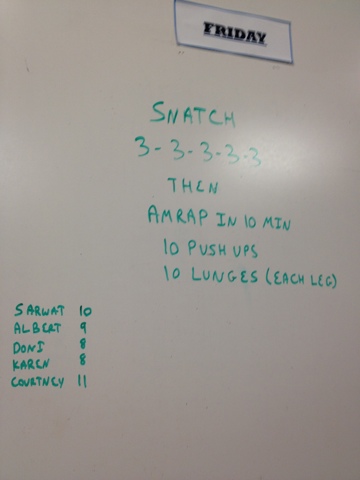 FRIDAY
SNATCH
3-3-3-3-3
THEN
AMRAP IN 10 MIN
10 PUSH UPS
10 LUNGES (EACH LEG)
SARWAT 10
ALBERT 9
DONI 8
KAREN 8
COURTNEY 11